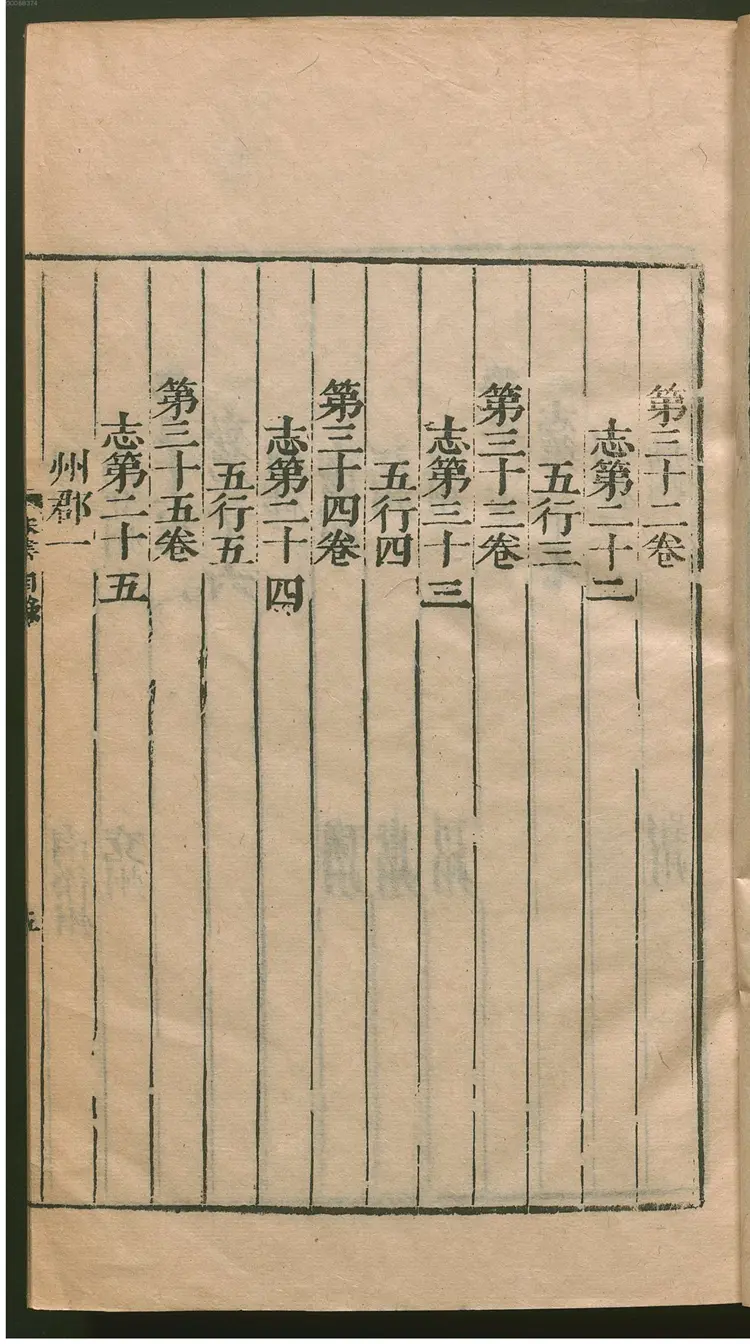 第三十二卷
志第二十二
五行三
第三十三卷
志第三十三
五行四
第三十四卷
志第二十四
五行五
第三十五卷
志第二十五
州郡一